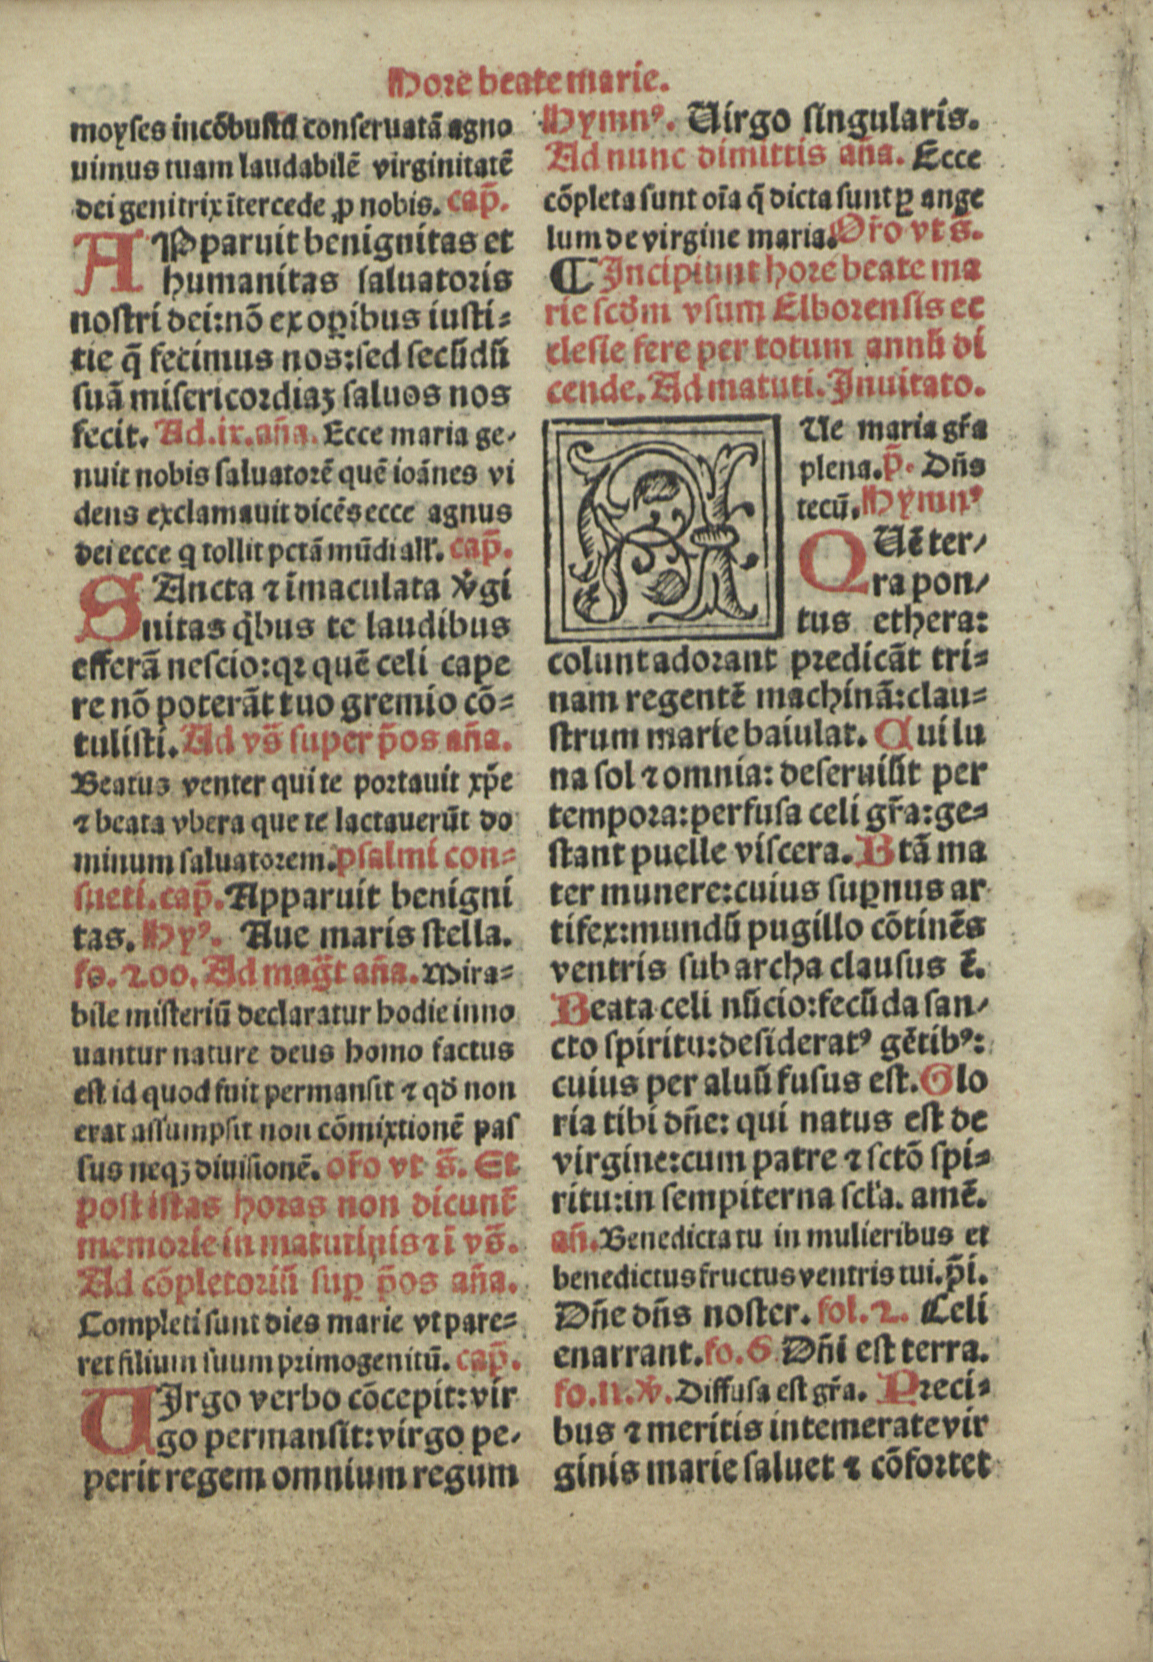 Hore beate marie.
moyses incõbustũ conseruatã agno
uimus tuam laudabilẽ virginitatẽ
dei genitrix ĩtercede ꝓ nobis. cap̃.
APparuit benignitas et
humanitas saluatoris
nostri dei: nõ ex oꝑibus iusti-
tie q̃ fecimus nos: sed secũdũ
suã misericordiaꝫ saluos nos
fecit. Ad .ix. añа. Ecce maria ge-
nuit nobis saluatorẽ quẽ ioãnes vi
dens exclamauit dicẽs ecce agnus
dei ecce q tollit pctã mũdi all'. cap̃.
SAncta ⁊ ĩmaculata v̾gi
nitas q̃bus te laudibus
efferã nescio: qꝛ quẽ celi cape
re nõ poterãt tuo gremio cõ-
tulisti. Ad vs̃ super p̃os aña.
Beatus venter qui te portauit xp̃e
⁊ beata vbera que te lactauerũt do
minum saluatorem. psalmi con-
sueti. cap̃. Apparuit benigni
tas. Hyꝰ. Aue maris stella.
fo. 200. Ad mag̃t aña. Mira-
bile misteriũ declaratur hodie inno
uantur nature deus homo factus
est id quod fuit permansit ⁊ qd̃ non
erat assumpsit non cõmixtionẽ pas
sus neqꝫ diuisionẽ. or̃o vt s̃. Et
post istas horas non dicunt̃
memorie in maturinis ⁊ ĩ vs̃.
Ad cõpletoriũ suꝑ p̃os aña.
Completi sunt dies marie vt pare-
ret filium suum primogenitũ. cap̃.
UIrgo verbo cõcepit: vir
go permansit: virgo pe-
perit regem omnium regum
Hymnꝰ. Uirgo singularis.
Ad nunc dimittis aña. Ecce
cõpleta sunt oĩa q̃ dicta sunt ꝑ ange
lum de virgine maria. Or̃o vt s̃.
¶ Incipiunt hore beate ma
rie scd̃m vsum Elborensis ec
clesie fere per totum annũ di
cende. Ad matuti. Inuitato.
AUe maria gr̃a
plena. p̃. Dñs
tecũ. Hymnꝰ
QUẽ ter-
ra pon-
tus ethera:
colunt adorant predicãt tri-
nam regentẽ machinã: clau-
strum marie baiulat. Cui lu
na sol ⁊ omnia: deseruiũt per
tempora: perfusa celi gr̃a: ge-
stant puelle viscera. Btã ma
ter munere: cuius suꝑnus ar
tifex: mundũ pugillo cõtinẽs
ventris sub archa clausus ẽ.
Beata celi nũcio: fecũda san-
cto spiritu: desideratꝰ gẽtibꝰ:
cuius per aluũ fusus est. Glo
ria tibi dñe: qui natus est de
virgine: cum patre ⁊ sctõ spi-
ritu: in sempiterna scl'a. amẽ.
añ. Benedicta tu in mulieribus et
benedictus fructus ventris tui. p̃i.
Dñe dñs noster. fol. 2. Celi
enarrant. fo. 6 Dñi est terra.
fo. 11. v̾. Diffusa est gr̃a. Preci-
bus ⁊ meritis intemerate vir
ginis marie saluet ⁊ cõfortet